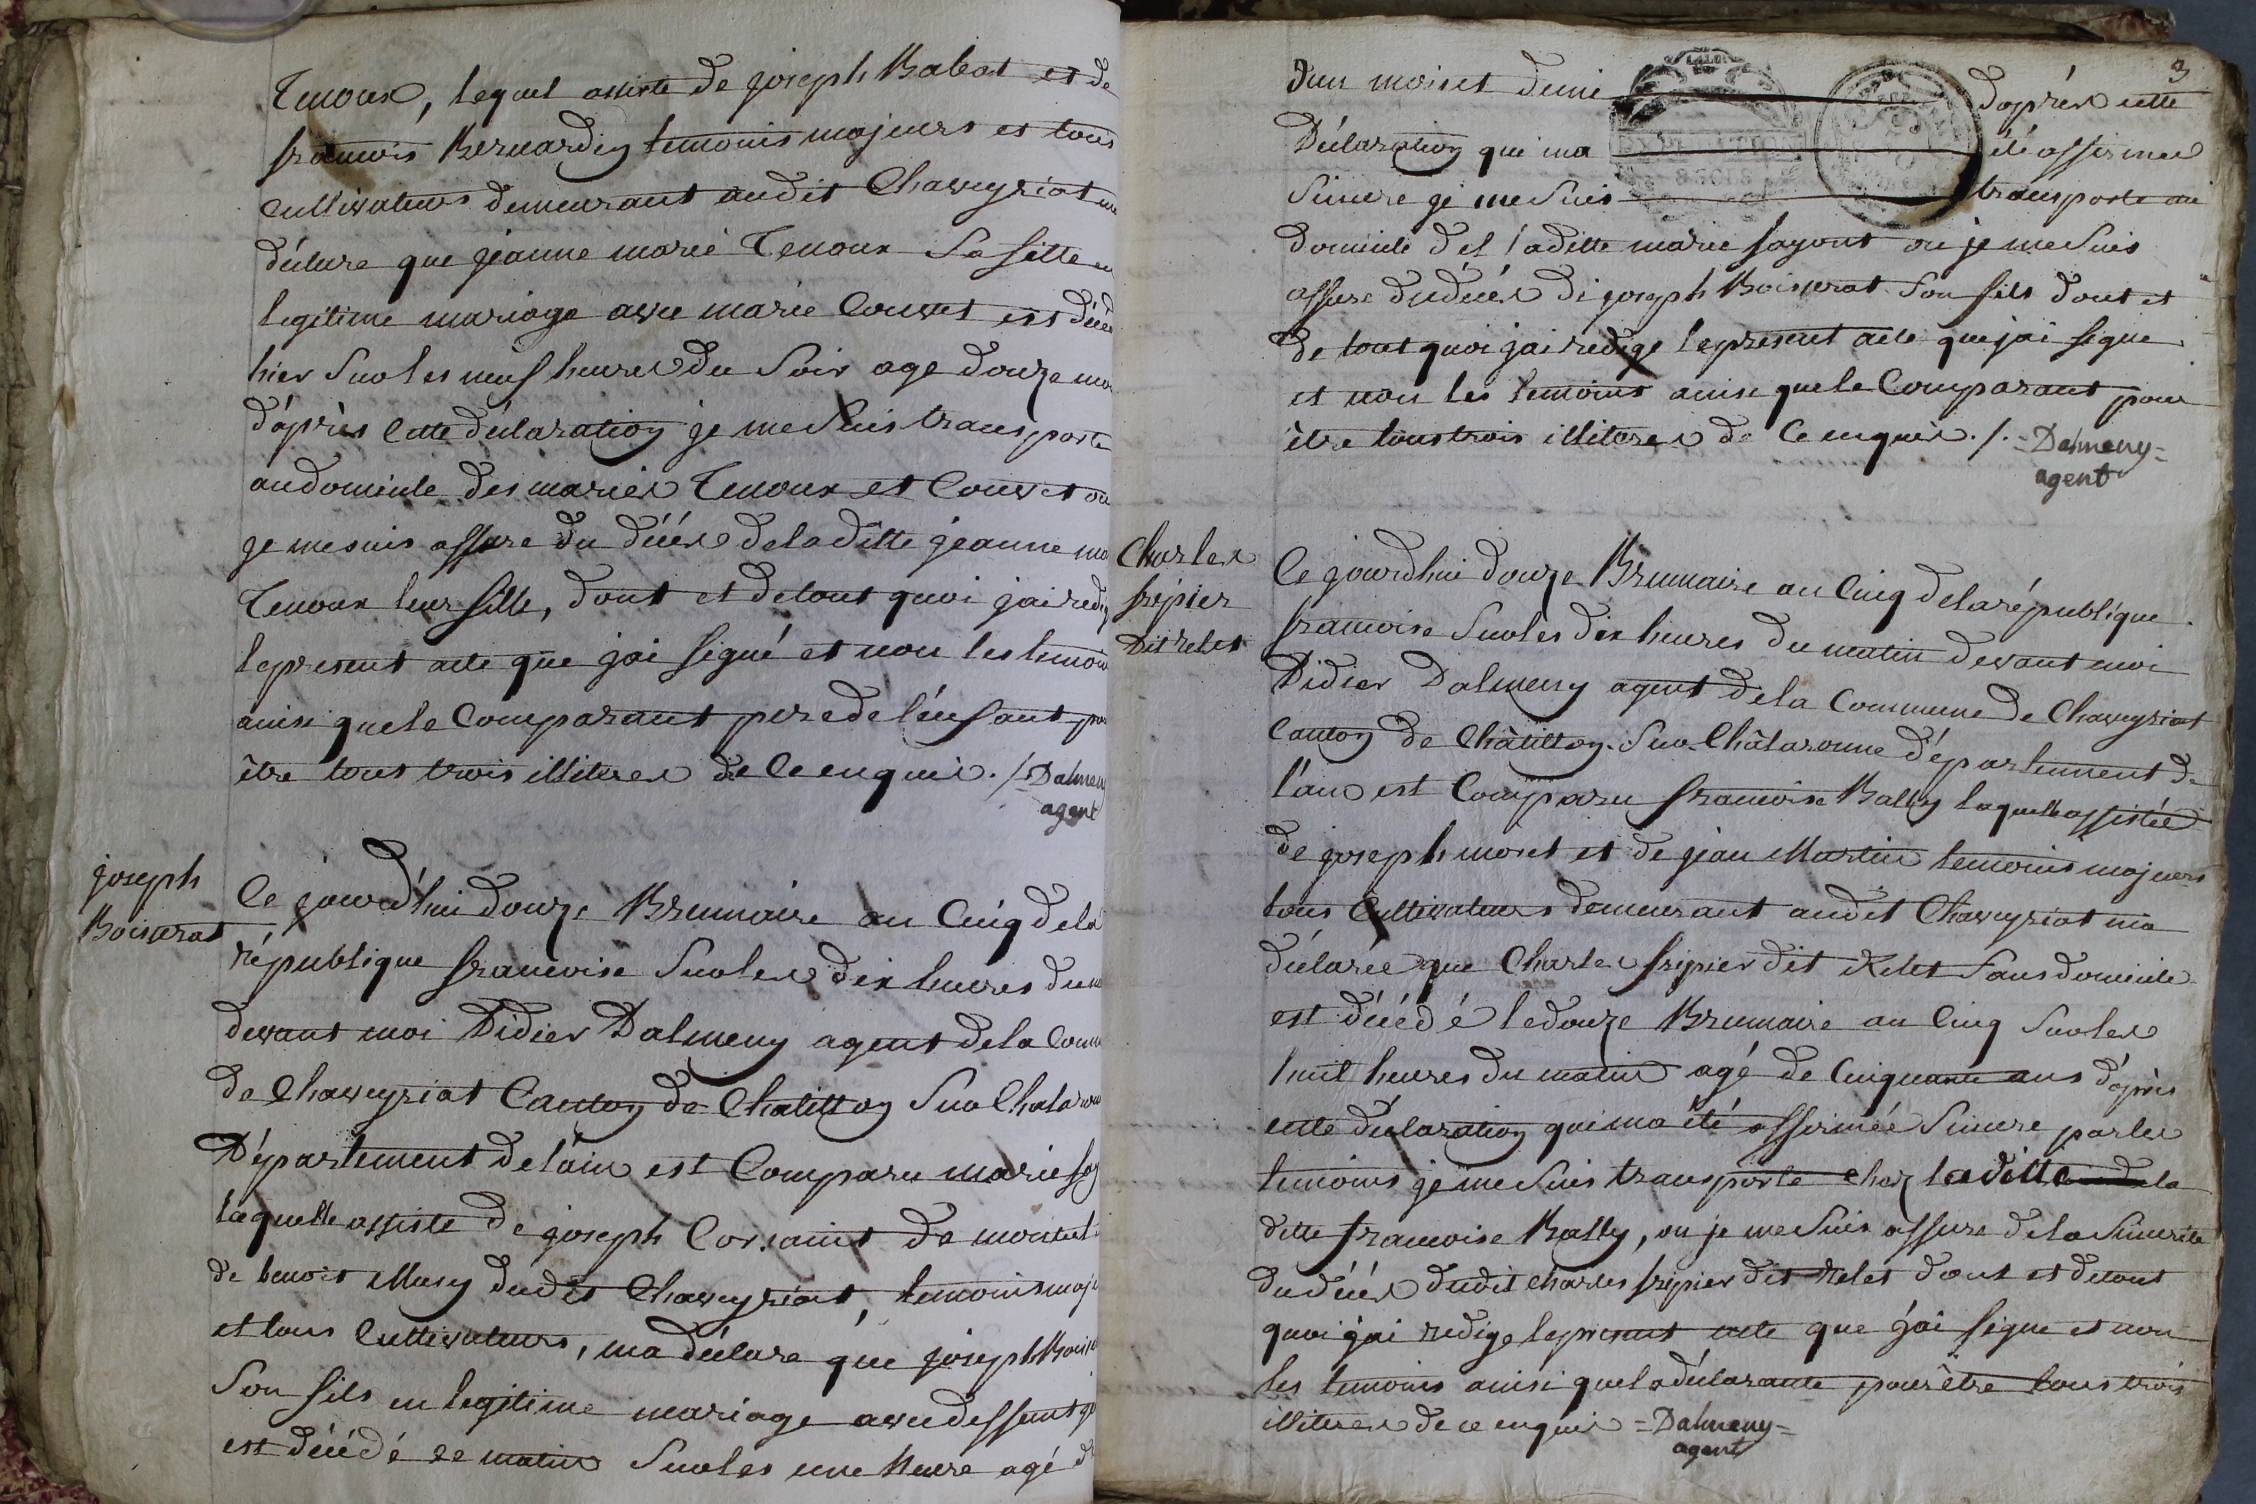 Tenoux, lequel assiste de joseph Rabat et de
francois Bernardin temoins majeurs et tous
cultivateurs demeurant audit Chaveyriat
déclare que jeanne marie Tenoux Sa fille
legitime mariage avec marie Couvet est
hier Sur les neuf heures du Soir age douze
d'après Cette déclaration je me Suis transporte
au domicile des mariés Tenoux et Couvet ou
je me suis assure du décés de la ditte jeanne
Tenoux leur fille, dont et de tout quoi jai
le present acte que jai signé et non les temoins
ainsi que le Comparant pere de l'enfant
être tous trois illiteres de Ce enquis ./. Dalmeny
agent
joseph
Boisserat
Ce jourd'hui douze Brumaire an Cinq de la
république francoise Sur les dix heures du
devant moi Didier Dalmeny agent de la
de Chaveyriat Canton de Chatillon Sur
Département de l'ain est Comparu marie
laquelle assiste de joseph Corsaint de
de benoit Musy dudit Chaveyriat, temoins
et tous Cultivateurs, ma déclare que joseph
Son fils en legitime mariage avec deffunt
est décédé ce matin Sur les une heure agé
3
d'un mois et demi d'aprés cette
Déclaration qui ma été affirmee
Sincere je me Suis transporte au
domicile de laditte marie fayont ou je me Suis
assure du décés de joseph Boisserat Son fils dont et
de tout quoi jai redige le present acte que jai signe
et non les temoins ainsi que le Comparant pour
être tous trois illiteres de Ce enquis ./. =Dalmeny=
agent
Charles
fripier
Dit relet
Ce jourdhui douze Brumaire an Cinq de la république
francoise Sur les dix heures du matin devant moi
Didier Dalmeny agent de la Commune de Chaveyriat
Canton de Châtillon Sur Châlaronne département de
l'ain est Comparu francoise Bally laquelle assistée
de joseph moret et de jean Martin temoins majeurs
tous Cultivateurs demeurant audit Chaveyriat ma
déclarée que Charles fripier dit Relet Sans domicile
est décédé le douze Brumaire an Cinq Sur les
huit heures du matin agé de Cinquante ans d'après
cette déclaration qui ma été affirmée Sincere par les
temoins je me Suis transporté chez laditte de la
ditte francoise Bally, ou je me Suis assure de la Sincerite
du décés dudit charles fripier dit Relet dont et de tout
quoi jai redige le present acte que jai signe et non
les temoins ainsi que la déclarante pour être tous trois
illiteres de ce enquis =Dalmeny=
agent